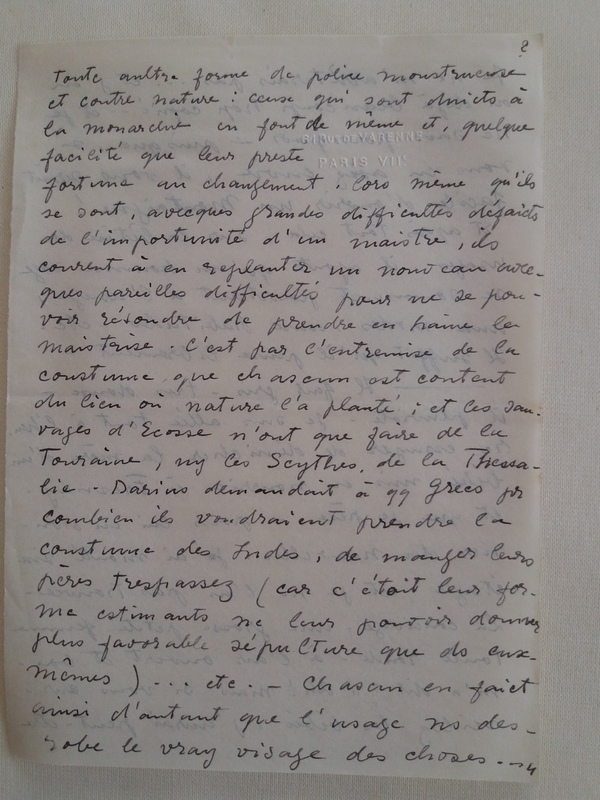 2
toute aultre forme de police monstrueuse
et contre nature : ceux qui sont duicts à
la monarchie en font de même et, quelque
facilité que leur preste
RUE DE VARENNE
PARIS VII
fortune au changement, lors même qu'ils
se sont, avecques grandes difficultés défaicts
de l'importunité d'un maistre, ils
courent à en replanter un nouveau avec-
ques pareilles difficultés pour ne se pou-
voir résoudre de prendre en haine la
maistrise. C'est par l'entremise de la
coustume que chascun est content
du lieu où nature l'a planté ; et les sau-
vages d'Ecosse n'ont que faire de la
Touraine, ny les Scythes, de la Thessa-
lie - Darius demandait à qq Grecs pr
combien ils voudraient prendre la
coustume des Indes, de manger leurs
pères trespassez (car c'était leur for-
me estimants ne leur pouvoir donner
plus favorable sépulture que ds eux-
mêmes) ... etc. - Chascun en faict
ainsi d'autant que l'usage ns des-
robe le vray visage des choses.